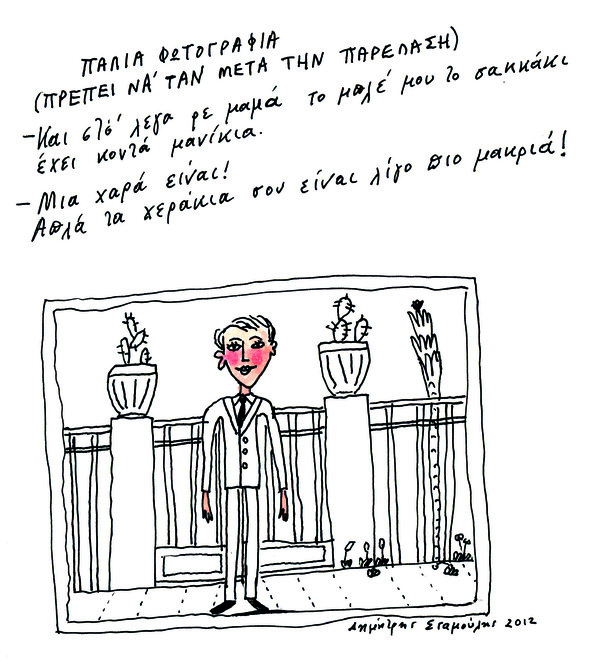 ΠΑΛΙΑ ΦΩΤΟΓΡΑΦΙΑ
(ΠΡΕΠΕΙ ΝΑ' ΤΑΝ ΜΕΤΑ ΤΗΝ ΠΑΡΕΛΑΣΗ)
- Και στό' λεγα ρε μαμά το μπλέ μου το σακκάκι
έχει κοντά μανίκια.
- Μια χαρά είναι!
Απλά τα χεράκια σου είναι λίγο πιο μακριά!
Δημήτρης Σταμούλης 2012